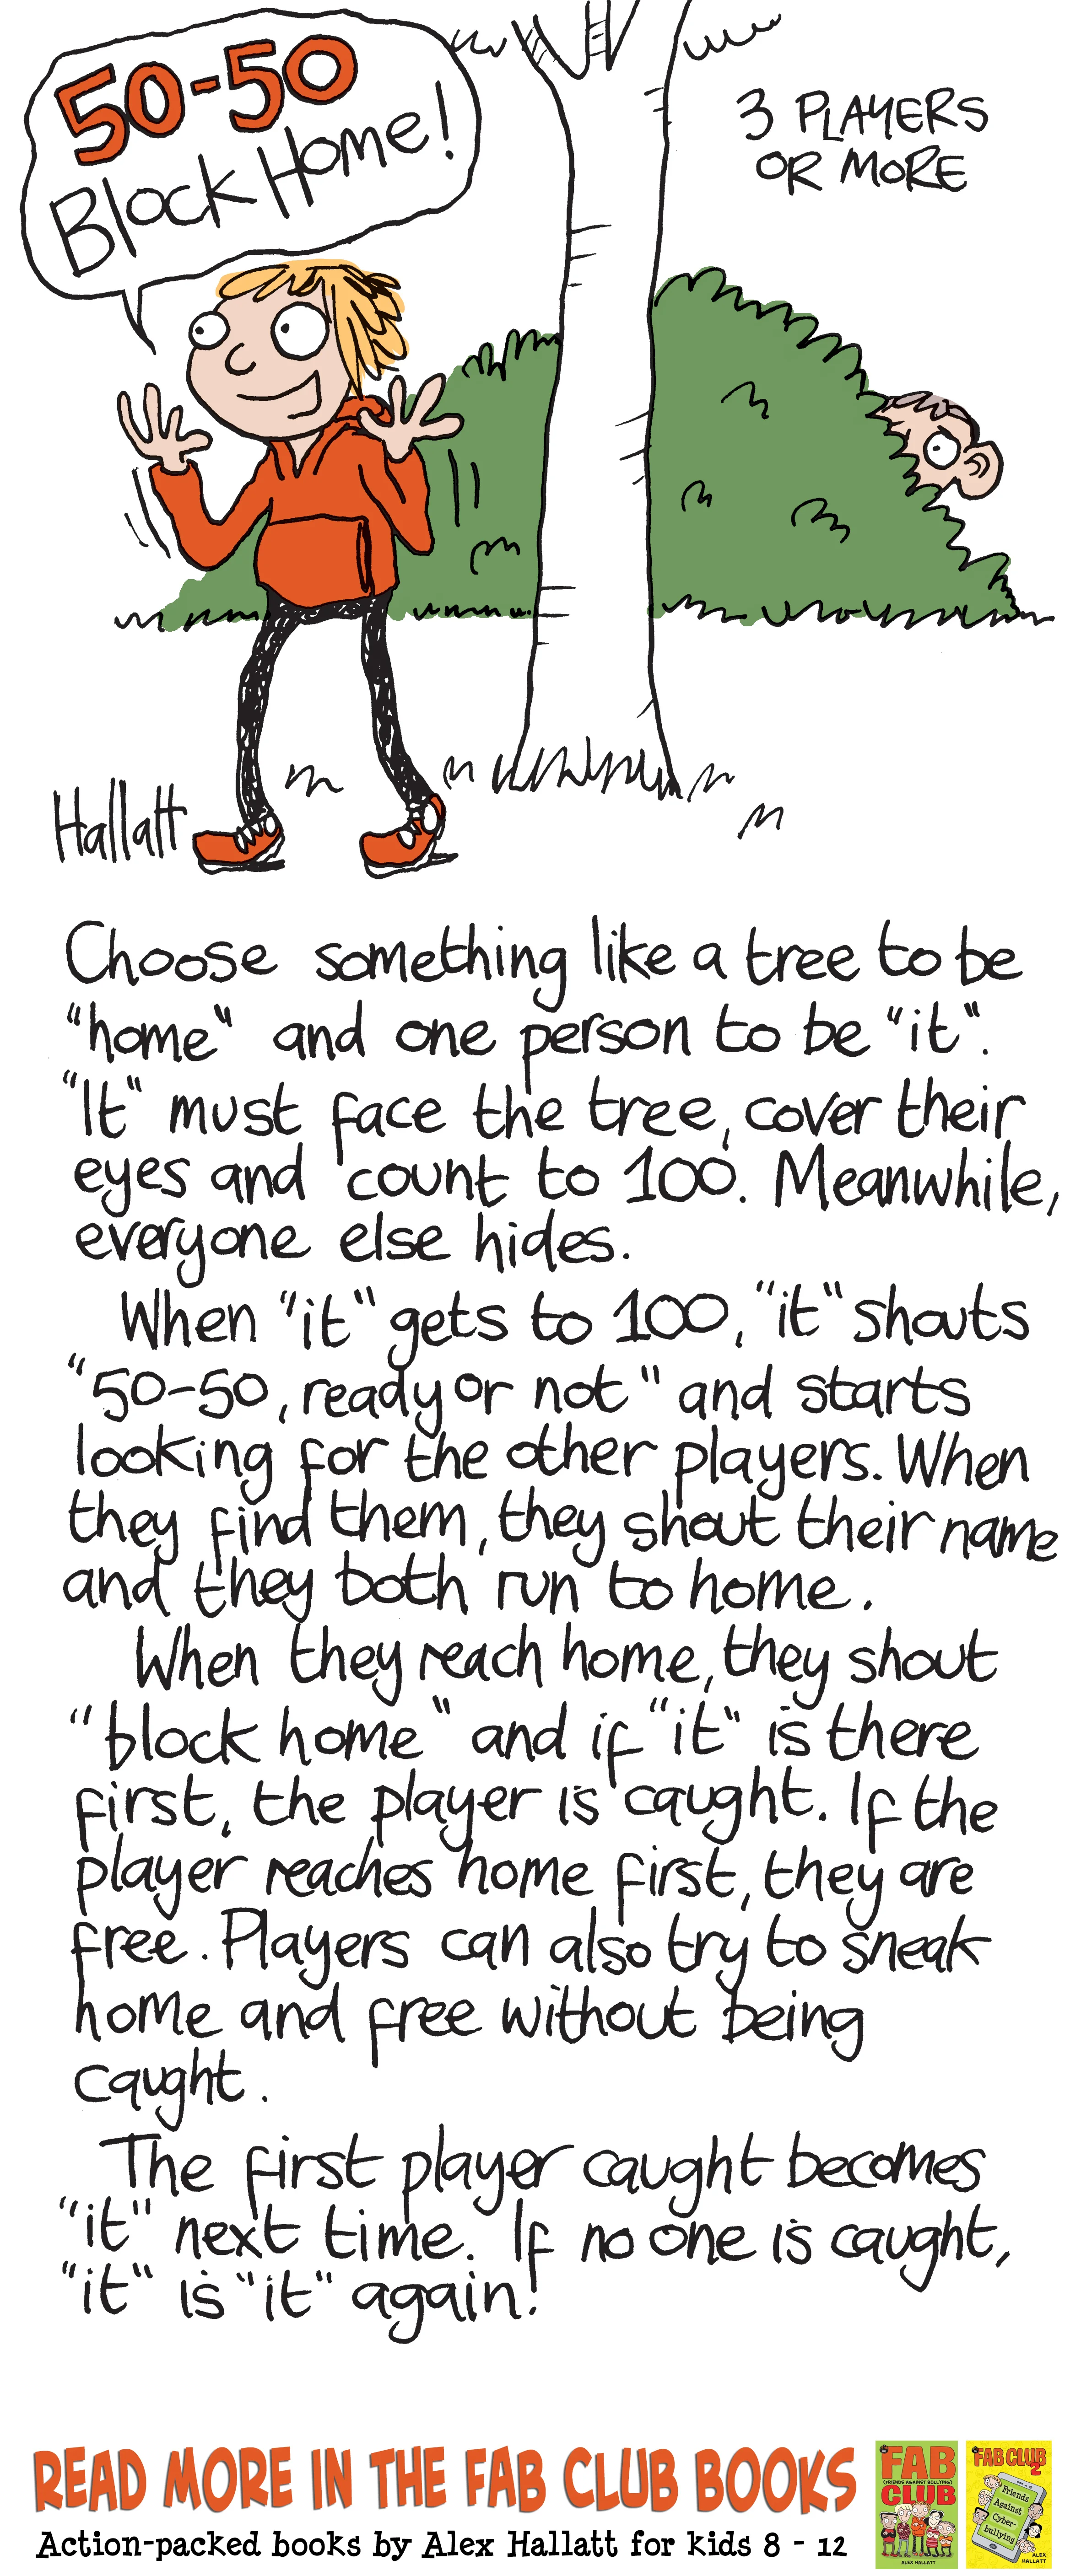 50-50
Block Home!
3 PLAYERS
OR MORE
Hallatt
Choose something like a tree to be
"home" and one person to be "it".
"It" must face the tree, cover their
eyes and count to 100. Meanwhile,
everyone else hides.
When "it" gets to 100, "it" shouts
"50-50, ready or not" and starts
looking for the other players. When
they find them, they shout their name
and they both run to home.
When they reach home, they shout
"block home" and if "it" is there
first, the player is caught. If the
player reaches home first, they are
free. Players can also try to sneak
home and free without being
caught.
The first player caught becomes
"it" next time. If no one is caught,
"it" is "it" again!
READ MORE IN THE FAB CLUB BOOKS
Action-packed books by Alex Hallatt for kids 8 - 12
FAB
(FRIENDS AGAINST BULLYING)
CLUB
ALEX HALLATT
FAB CLUB
2
Friends
Against
Cyber-
bullying
ALEX
HALLATT